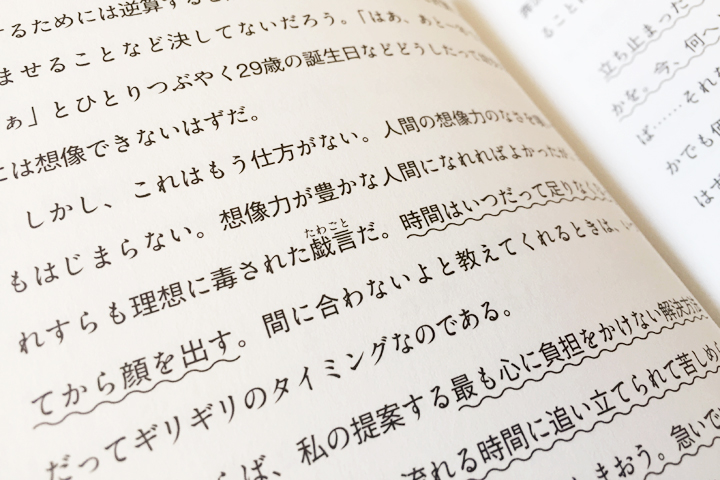 するためには逆算すると
ませることなど決してないだろう。「はあ、あと一年
ぁ」とひとりつぶやく29歳の誕生日などどうしたって
には想像できないはずだ。
しかし、これはもう仕方がない。人間の想像力のなさを
もはじまらない。想像力が豊かな人間になれればよかったが、
れすらも理想に毒された戯言だ。時間はいつだって足りなくな
たわごと
てから顔を出す。間に合わないよと教えてくれるときは、い
だってギリギリのタイミングなのである。
ば、私の提案する最も心に負担をかけない解決方法
流れる時間に追い立てられて苦しめ
まおう。急いで
立ち止まった
かを。今、何へ
ば……それな
かでも
はす
ること